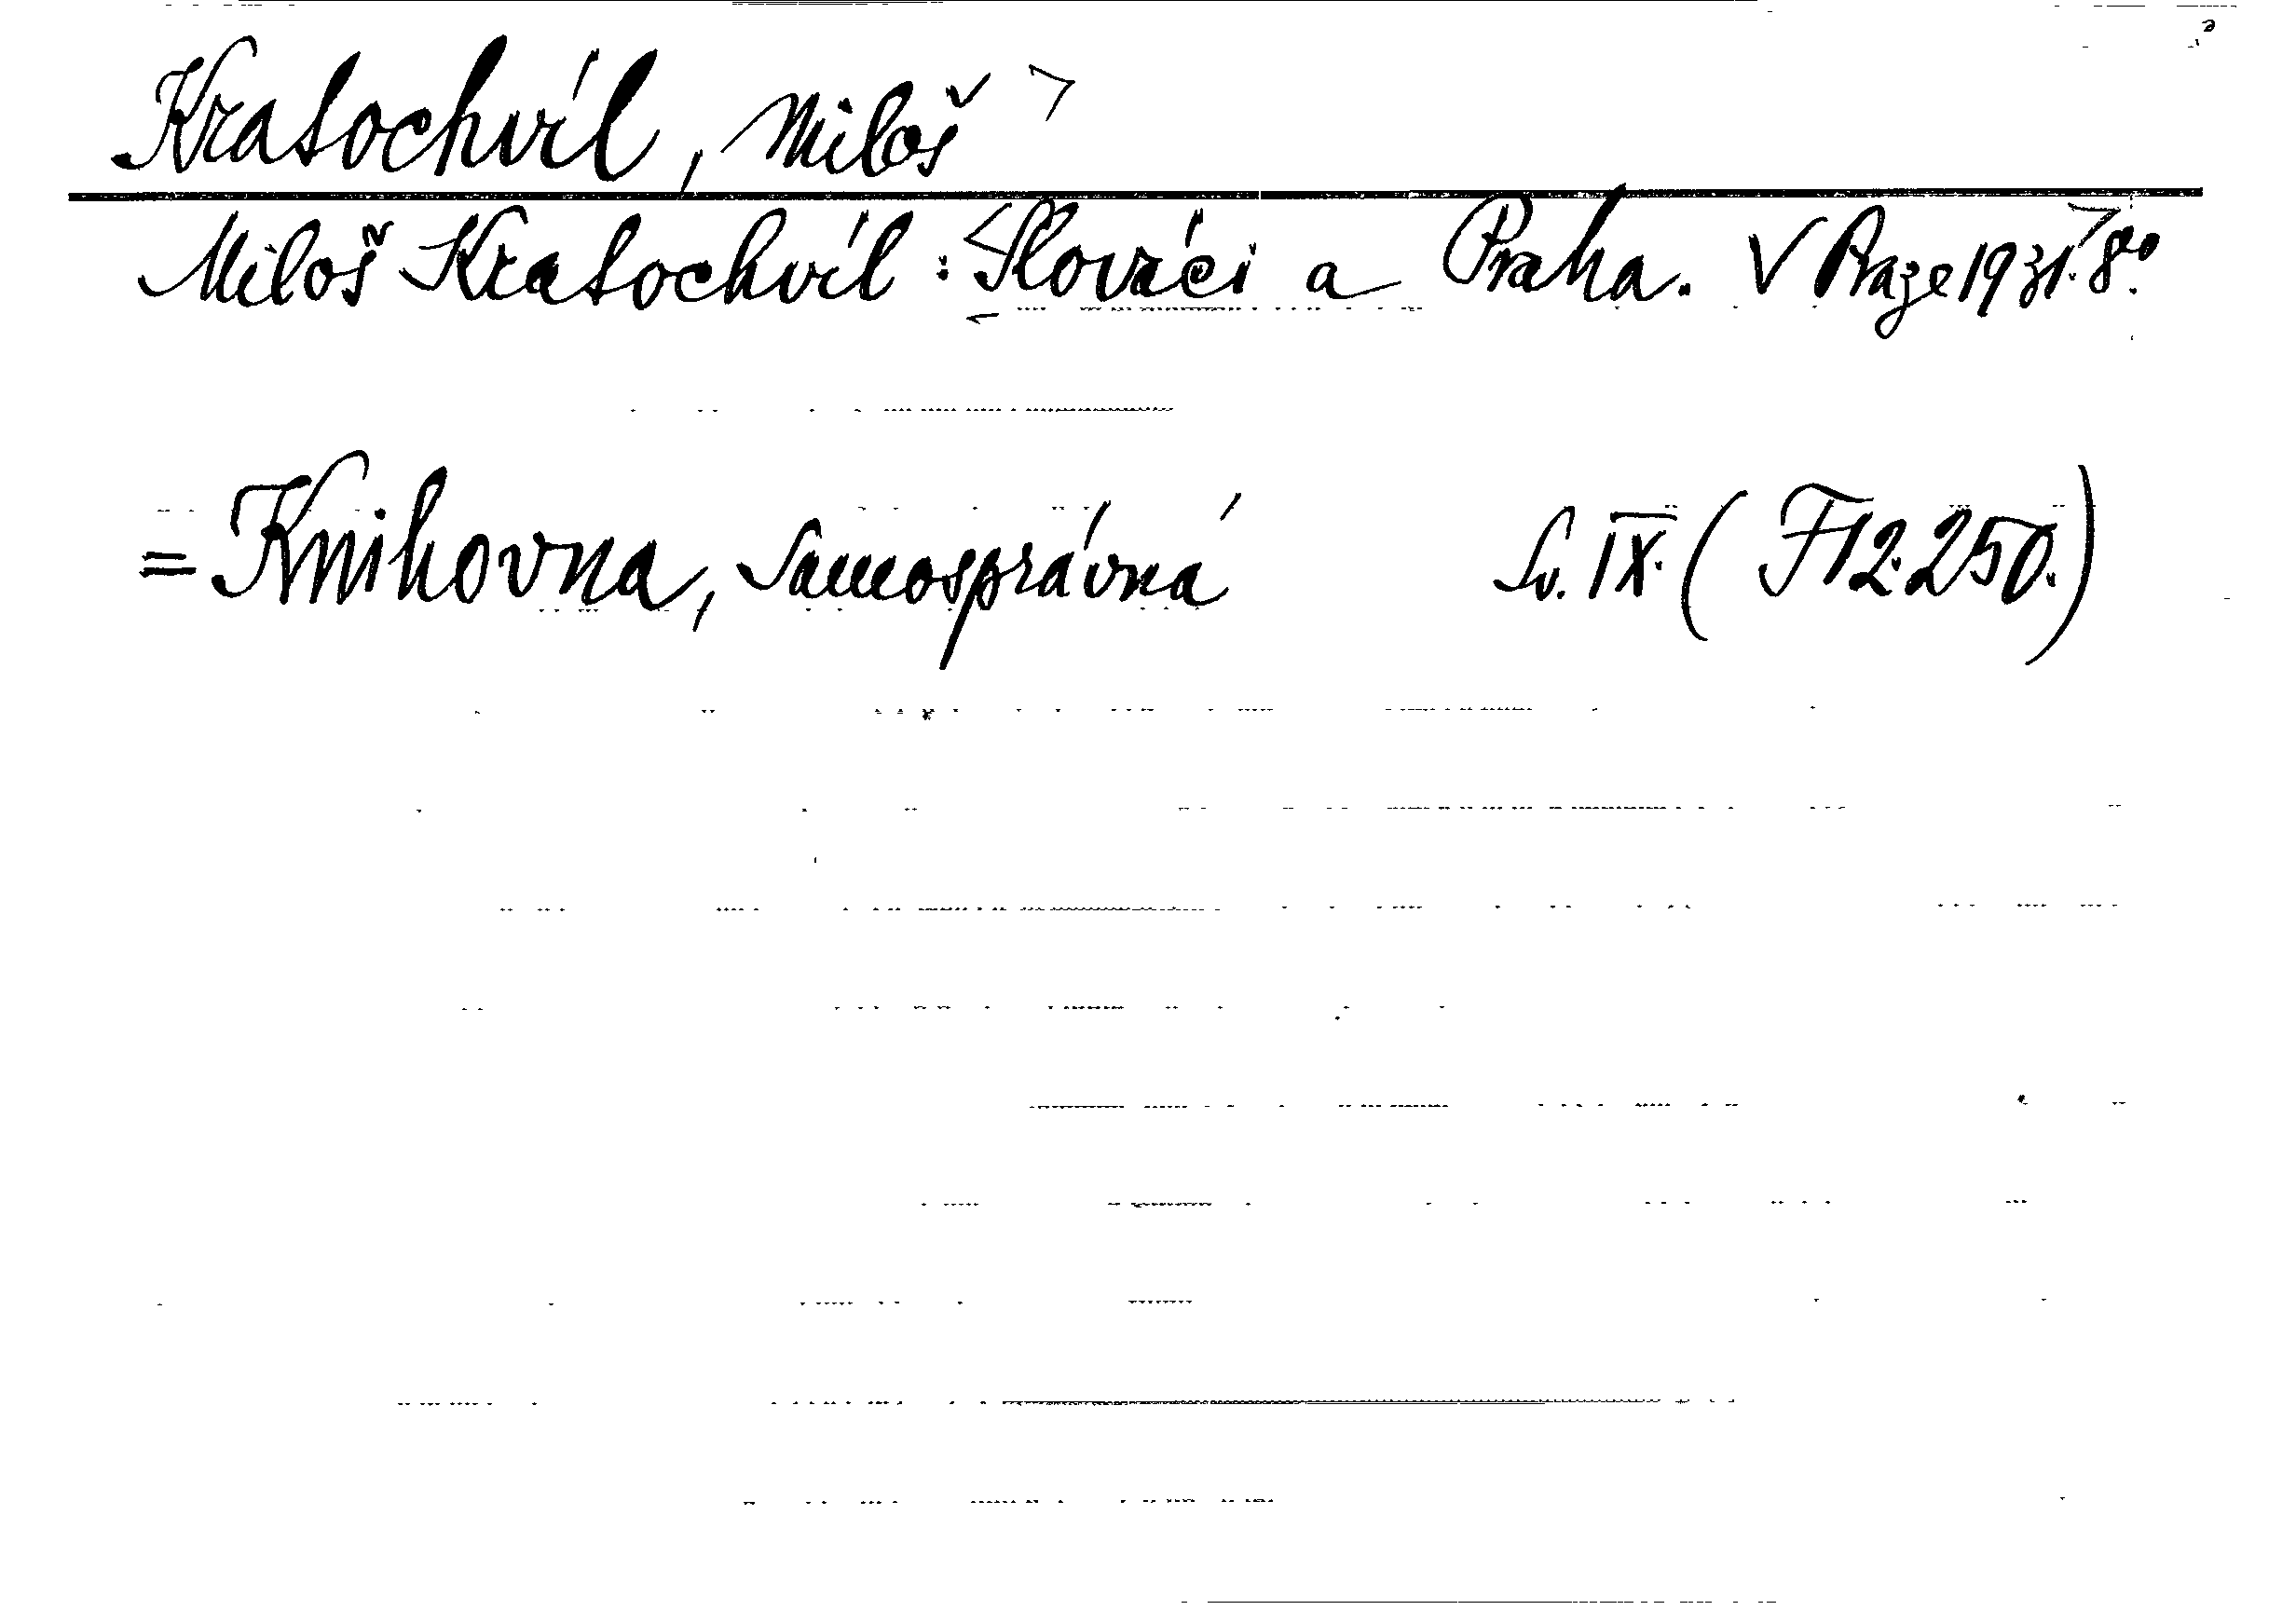 Kratochvíl, Miloš
Miloš Kratochvíl: Slováci a Praha. V Praze 1931. 8°.
= Knihovna, Samosprávná Sv. IX. (F12.250.)